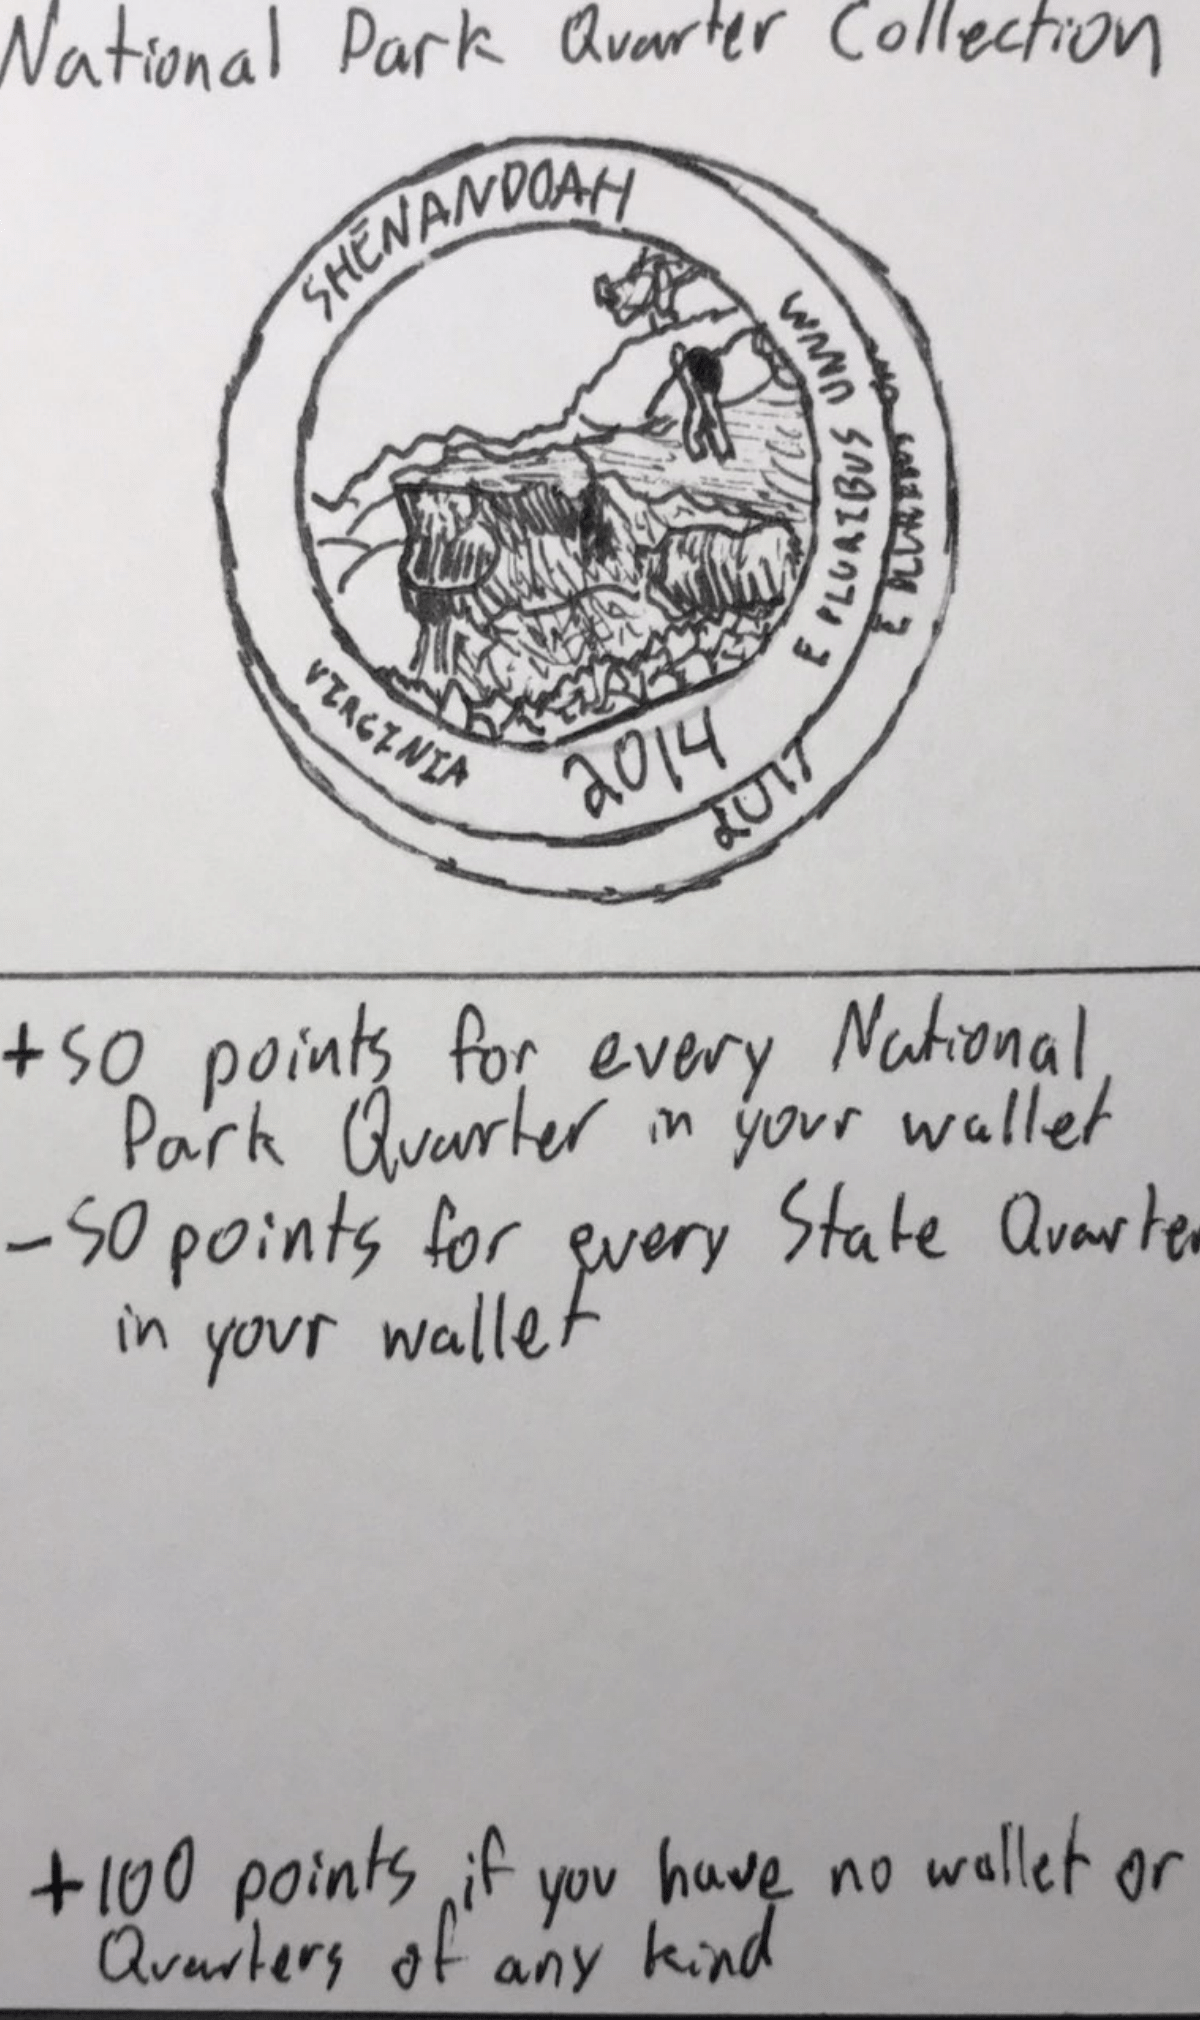 National Park Quarter Collection
SHENANDOAH
E PLURIBUS UNUM
E PLURIBUS
VIRGINIA
2014
+50 points for every National
Park Quarter in your wallet
-50 points for every State Quarter
in your wallet
+100 points if you have no wallet or
Quarters of any kind